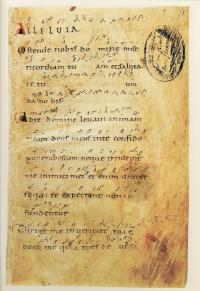 ALLELUIA
Ostende nobis do mine mise
ricordiam tu am et saluta
re tu um
da nobis
Ad te domine levavi animam
meam deus meus in te confido
non erubescam neque irrideant
me inimici mei et enim univer
si qui te expectant non con
fundentur
Dirige me in veritate tua et
doce me quia tu es deus